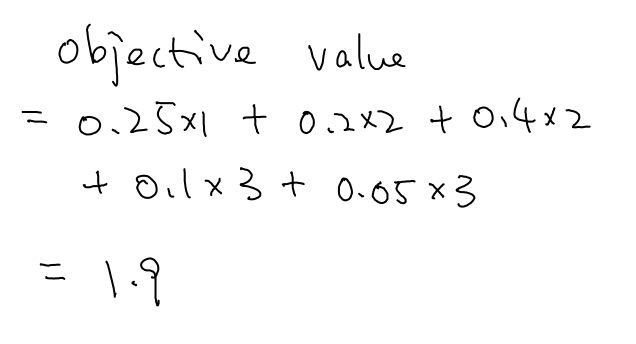 objective value
= 0.25×1 + 0.2×2 + 0.4×2
+ 0.1×3 + 0.05×3
= 1.9